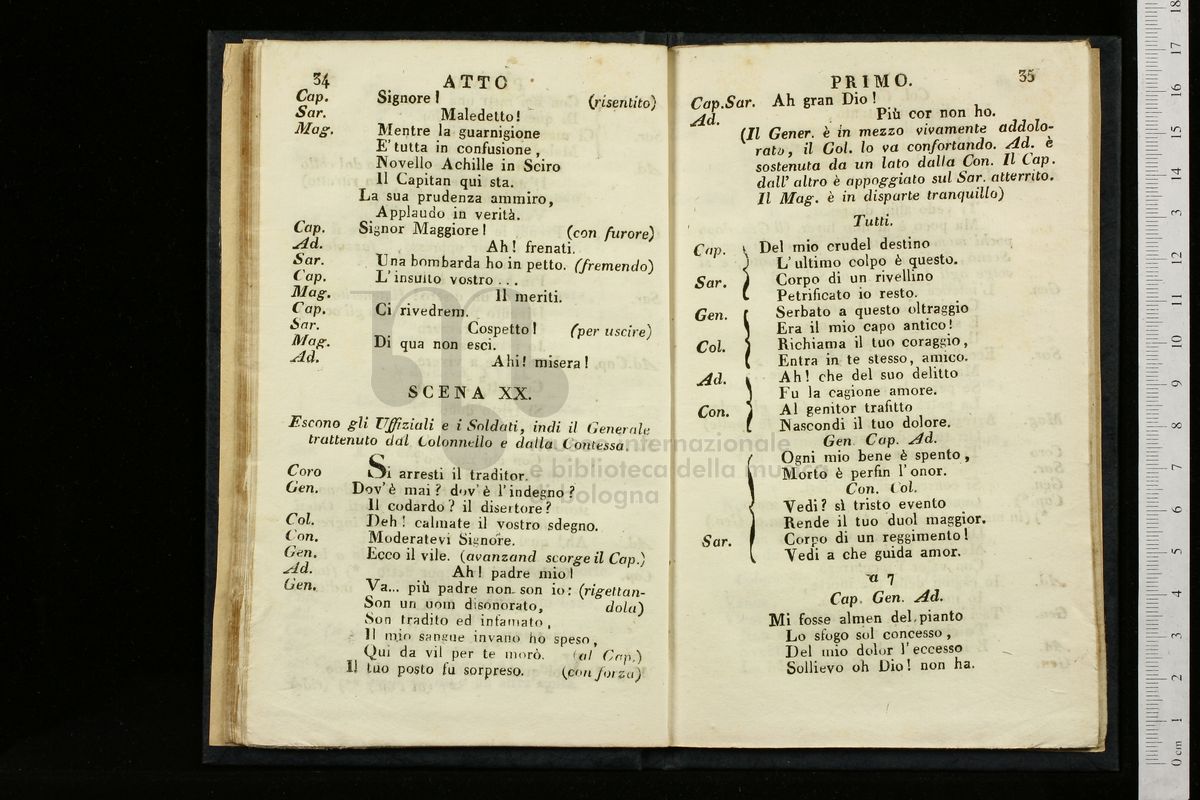 34 ATTO
Cap. Signore! (risentito)
Sar. Maledetto!
Mag. Mentre la guarnigione
E' tutta in confusione,
Novello Achille in Sciro
Il Capitan qui sta.
La sua prudenza ammiro,
Applaudo in verità.
Cap. Signor Maggiore! (con furore)
Ad. Ah! frenati.
Sar. Una bombarda ho in petto. (fremendo)
Cap. L'insulto vostro ...
Mag. Il meriti.
Cap. Ci rivedrem.
Sar. Cospetto! (per uscire)
Mag. Di qua non esci.
Ad. Ahi! misera!
SCENA XX.
Escono gli Uffiziali e i Soldati, indi il Generale
trattenuto dal Colonnello e dalla Contessa.
Coro Si arresti il traditor.
Gen. Dov'è mai? dov'è l'indegno?
Il codardo? il disertore?
Col. Deh! calmate il vostro sdegno.
Con. Moderatevi Signore.
Gen. Ecco il vile. (avanzand scorge il Cap.)
Ad. Ah! padre mio!
Gen. Va... più padre non son io: (rigettan-
Son un uom disonorato, dola)
Son tradito ed infamato,
Il mio sangue invano ho speso,
Qui da vil per te morò. (al Cap.)
Il tuo posto fu sorpreso. (con forza)
PRIMO. 35
Cap.Sar. Ah gran Dio!
Ad. Più cor non ho.
(Il Gener. è in mezzo vivamente addolo-
rato, il Col. lo va confortando. Ad. è
sostenuta da un lato dalla Con. Il Cap.
dall' altro è appoggiato sul Sar. atterrito.
Il Mag. è in disparte tranquillo)
Tutti.
Cap. Del mio crudel destino
L'ultimo colpo è questo.
Sar. Corpo di un rivellino
Petrificato io resto.
Gen. Serbato a questo oltraggio
Era il mio capo antico!
Col. Richiama il tuo coraggio,
Entra in te stesso, amico.
Ad. Ah! che del suo delitto
Fu la cagione amore.
Con. Al genitor trafitto
Nascondi il tuo dolore.
Gen. Cap. Ad.
Ogni mio bene è spento,
Morto è perfin l'onor.
Con. Col.
Vedi? sì tristo evento
Rende il tuo duol maggior.
Sar. Corpo di un reggimento!
Vedi a che guida amor.
a 7
Cap. Gen. Ad.
Mi fosse almen del pianto
Lo sfogo sol concesso,
Del mio dolor l'eccesso
Sollievo oh Dio! non ha.
museo internazionale
e biblioteca della musica
di bologna
0 cm 1 2 3 4 5 6 7 8 9 10 11 12 13 14 15 16 17 18